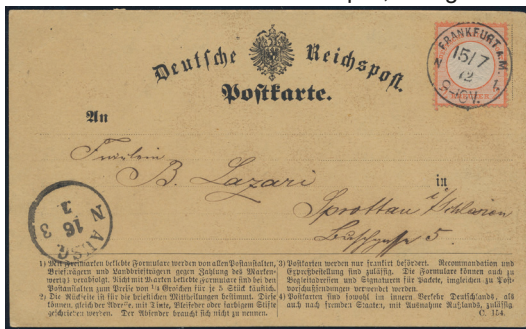 Deutsche Reichspost.
Postkarte.
FRANKFURT A.M.
15/7
72
8-9 V.
An
Fräulein
B. Lazari
in
Sprottau i/Schlesien
5.
AUSG
16 3
N
1) Mit Freimarken beklebte Formulare werden von allen Postanstalten,
Briefträgern und Landbriefträgern gegen Zahlung des Marken-
werts verabfolgt. Nicht mit Marken beklebte Formulare sind bei den
Postanstalten zum Preise von 1/4 Groschen für je 5 Stück käuflich.
2) Die Rückseite ist für die brieflichen Mittheilungen bestimmt. Diese
können gleich der Adresse, mit Tinte, Bleifeder oder farbigem Stifte
geschrieben werden. Der Absender braucht sich nicht zu nennen.
3) Postkarten werden nur frankirt befördert. Recommandation und
Expreßbestellung sind zulässig. Die Formulare können auch zu
Begleitadressen und Signaturen für Packete, imgleichen zu Post-
vorschußsendungen verwendet werden.
4) Postkarten sind sowohl im innern Verkehr Deutschlands, als
auch nach fremden Staaten, mit Ausnahme Rußlands, zulässig.
C. 154.